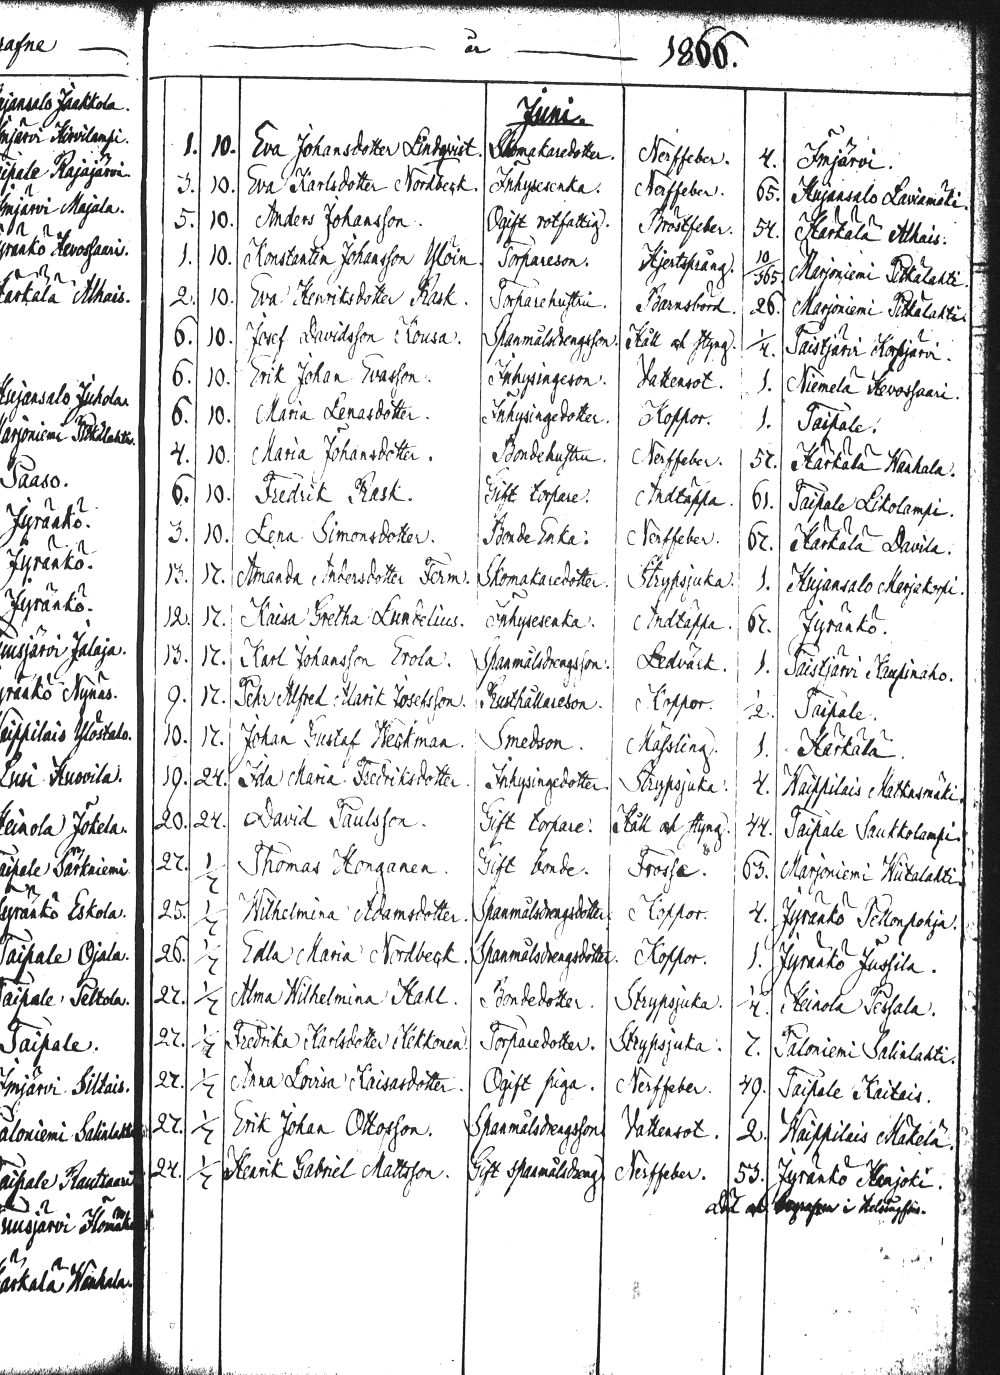 rafne
ujansalo Jaakkola.
mjärvi Hirvilampi.
aipale Rajajärvi.
Imjärvi Majala.
yränkö Hevossaari.
Kärkälä Alhais.
Kujansalo Juhola.
Marjoniemi Pitkälahti.
Paaso.
Jyränkö.
Jyränkö.
Jyränkö.
uusjärvi Jalaja.
yränkö Nynäs.
Waippilais Ylöstalo.
Lusi Kuovila.
Heinola Jokela.
aipale Särkniemi.
Jyränkö Eskola.
Taipale Ojala.
Taipale Peltola.
Taipale.
Imjärvi Siltais.
aloniemi Salinlahti.
aipale Rautsaari.
uusjärvi
Kärkälä Wanhala.
år 1866.
Juni.
1. 10. Eva Johansdotter Lindqvist. Skomakaredotter. Nerffeber. 4. Imjärvi.
3. 10. Eva Karlsdotter Nordbeck. Inhysesenka. Nerffeber. 65. Kujansalo Laviamäki.
5. 10. Anders Johansson. Ogift rotfattig. Bröstfeber. 54. Kärkälä Alhais.
1. 10. Konstantin Johansson Ylöin. Torpareson. Hjertsprång. 10/365 Marjoniemi Pitkälahti.
2. 10. Eva Henriksdotter Rask. Torparehustru. Barnsbörd. 26. Marjoniemi Pitkälahti.
6. 10. Josef Davidsson Kousa. Spanmålsdrengsson. Håll och styng. 1/4. Taistjärvi Korpjärvi.
6. 10. Erik Johan Evasson. Inhysingeson. Vattensot. 1. Niemelä Hevossaari.
6. 10. Maria Lenasdotter. Inhysingedotter. Koppor. 1. Taipale.
4. 10. Maria Johansdotter. Bondehustru. Nerffeber. 57. Kärkälä Wanhala.
6. 10. Fredrik Rask. Gift torpare. Andtäppa. 61. Taipale Likolampi.
3. 10. Lena Simonsdotter. Bonde Enka. Nerffeber. 67. Kärkälä Davila.
13. 17. Amanda Andersdotter Term. Skomakaredotter. Strypsjuka. 1. Kujansalo Marjakorpi.
12. 17. Kaisa Gretha Lundelius. Inhysesenka. Andtäppa. 67. Jyränkö.
13. 17. Karl Johansson Erola. Spanmålsdrengsson. Ledvärk. 1. Taistjärvi Kaupinaho.
9. 17. Pehr Alfred Marik Josefsson. Rusthållareson. Koppor. 1/2. Taipale.
10. 17. Johan Gustaf Weckman. Smedson. Mässling. 1. Kärkälä.
19. 24. Ida Maria Fredriksdotter. Inhysingedotter. Strypsjuka. 4. Waippilais Matkusmäki.
20. 24. David Paulsson. Gift torpare. Håll och styng. 44. Taipale Saukkolampi.
27. 1/7 Thomas Honganen. Gift bonde. Frossa. 63. Marjoniemi Wiitalahti.
25. 1/7 Wilhelmina Adamsdotter. Spanmålsdrengsdotter. Koppor. 4. Jyränkö Pellonpohja.
26. 1/7 Edla Maria Nordbeck. Spanmålsdrengsdotter. Koppor. 1. Jyränkö Jussila.
27. 1/7 Alma Wilhelmina Kahl. Bondedotter. Strypsjuka. 1/4. Heinola Pessala.
27. 1/7 Fredrika Karlsdotter Kekkonen. Torparedotter. Strypsjuka. 7. Paloniemi Salinlahti.
27. 1/7 Anna Lovisa Kaisasdotter. Ogift piga. Nerffeber. 49. Taipale Kaitais.
27. 1/7 Erik Johan Ottosson. Spanmålsdrengsson. Vattensot. 2. Waippilais Mäkelä.
24. 1/7 Henrik Gabriel Mattsson. Gift spanmålsdreng. Nerffeber. 53. Jyränkö Harjoki.
Död och begrafven i Helsingfors.